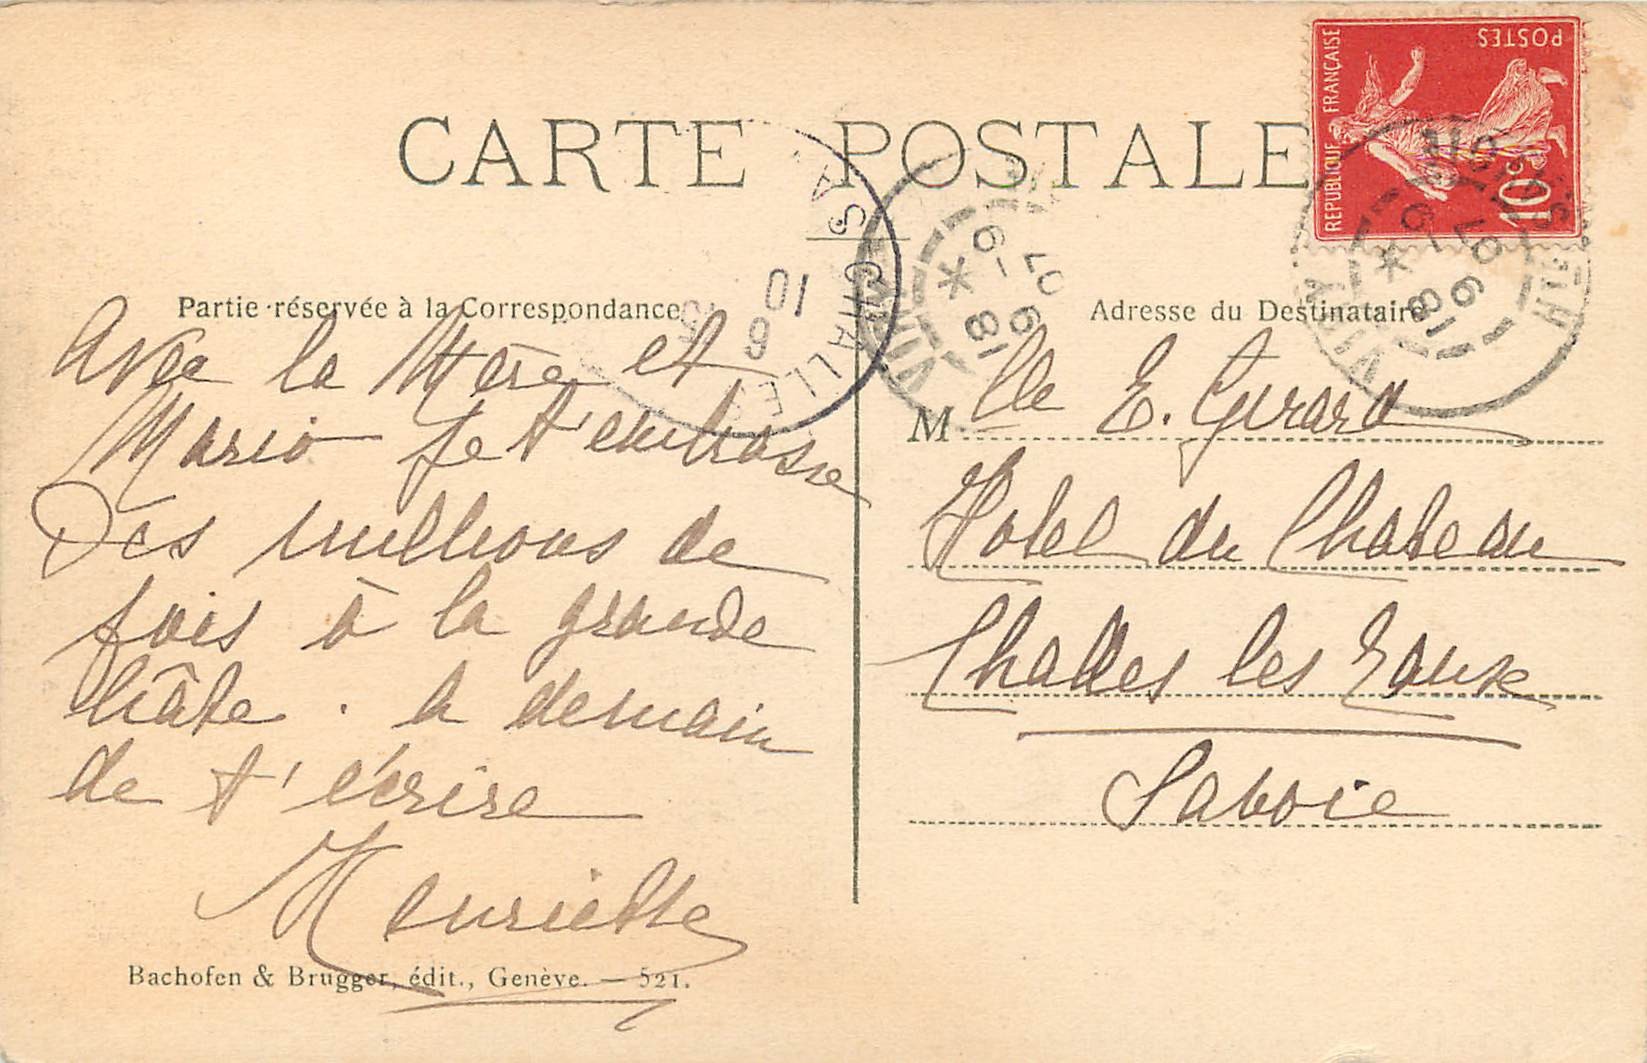 CARTE POSTALE
REPUBLIQUE FRANÇAISE
POSTES
10c
Partie réservée à la Correspondance
Adresse du Destinataire
CHALLES
10
8
18
6-9
07
18
6-9
07
Avec la Mère et
Mario je t'embrasse
Des millions de
fois à la grande
hâte. A demain
de t'écrire
Henriette
Mlle E. Girard
Hotel du Chateau
Challes les Eaux
Savoie
Bachofen & Brugger, édit., Genève. — 521.